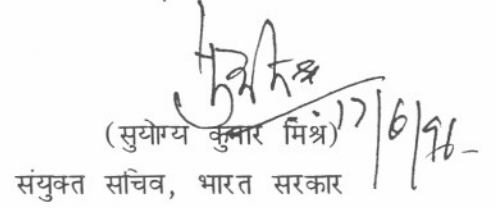 (सुयोग्य कुमार मिश्र) 17/6/96
संयुक्त सचिव, भारत सरकार